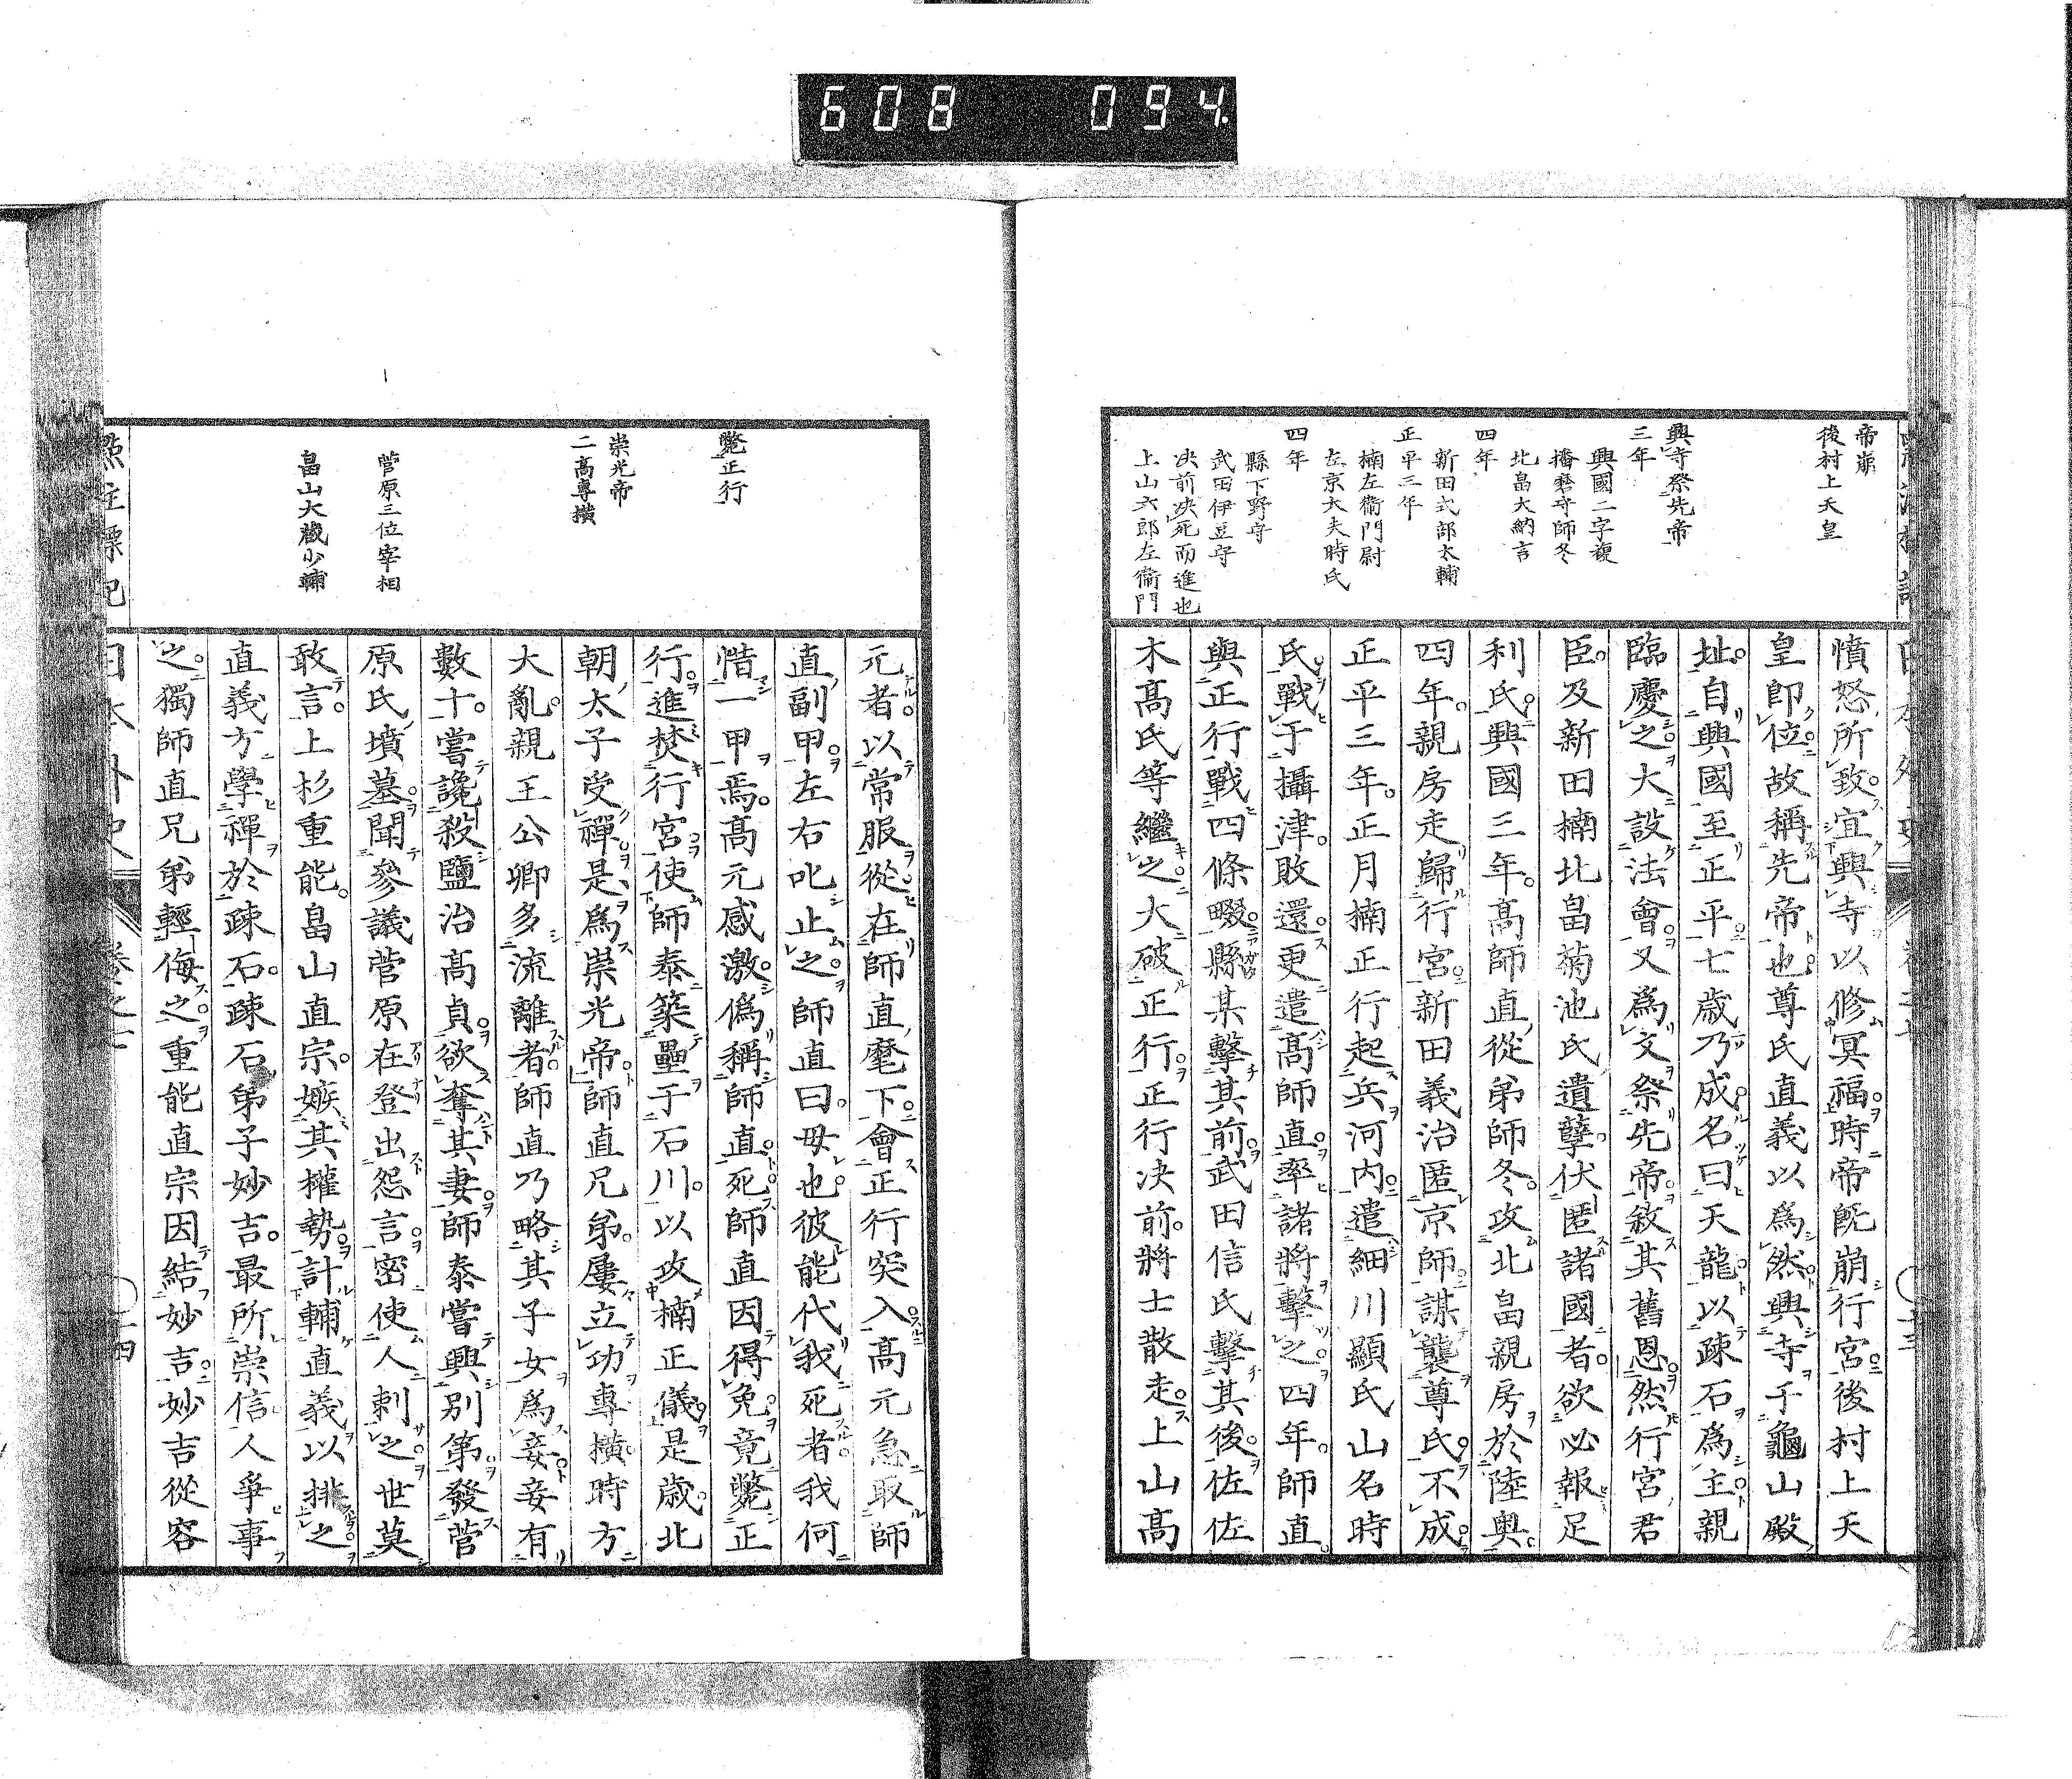 608 094.
帝崩
後村上天皇
興寺祭先帝
三年
興國二字複
播磨守師冬
北畠大納言
四年
新田式部大輔
正平三年
楠左衞門尉
左京大夫時氏
四年
縣下野守
武田伊豆守
决前决死而進也
上山六郎左衞門
憤怒所致宜興寺以修冥福時帝旣崩行宮後村上天
皇卽位故稱先帝也尊氏直義以爲然興寺于龜山殿
址自興國至正平七歳乃成名曰天龍以疎石爲主親
臨慶之大設法會又爲文祭先帝敘其舊恩然行宮君
臣及新田楠北畠菊池氏遺孽伏匿諸國者欲必報足
利氏興國三年高師直從弟師冬攻北畠親房於陸奧
四年親房走歸行宮新田義治匿京師謀襲尊氏不成
正平三年正月楠正行起兵河内遣細川顯氏山名時
氏戰于攝津敗還更遣高師直率諸將擊之四年師直
與正行戰四條畷縣某擊其前武田信氏擊其後佐佐
木高氏等繼之大破正行正行决前將士散走上山高
斃正行
崇光帝
二高專擅
菅原三位宰相
畠山大藏少輔
元者以常服從在師直麾下會正行突入高元急取師
直副甲左右叱止之師直曰毋也彼能代我死者我何
惜一甲焉高元感激僞稱師直死師直因得免竟斃正
行進焚行宮使師泰築壘于石川以攻楠正儀是歳北
朝太子受禪是爲崇光帝師直兄弟屢立功專擅時方
大亂親王公卿多流離者師直乃略其子女爲妾妾有
數十嘗讒殺鹽治高貞欲奪其妻師泰嘗興別第發菅
原氏墳墓聞參議菅原在登出怨言密使人刺之世莫
敢言上杉重能畠山直宗嫉其權勢計輔直義以排之
直義方學禪於疎石疎石弟子妙吉最所崇信人爭事
之獨師直兄弟輕侮之重能直宗因結妙吉妙吉從容
日本外史 卷之七